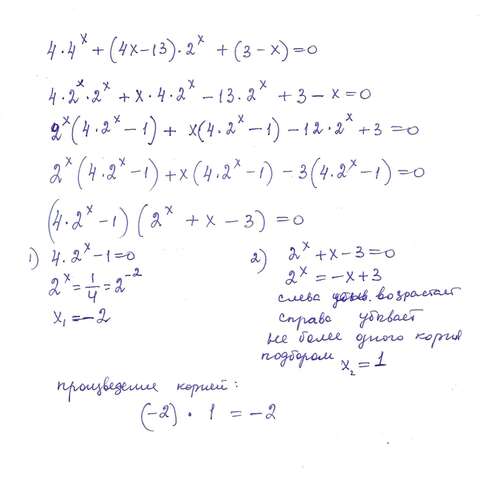 4·4^x + (4x-13)·2^x + (3-x)=0
4·2^x·2^x + x·4·2^x - 13·2^x + 3 - x = 0
2^x(4·2^x-1) + x(4·2^x-1) - 12·2^x + 3 = 0
2^x(4·2^x-1) + x(4·2^x-1) - 3(4·2^x-1) = 0
(4·2^x-1)(2^x + x - 3) = 0
1) 4·2^x-1=0
2^x = 1/4 = 2^-2
x₁ = -2
2) 2^x + x - 3 = 0
2^x = -x + 3
слева возрастает
справа убывает
не более одного корня
подбором x₂ = 1
произведение корней:
(-2) · 1 = -2